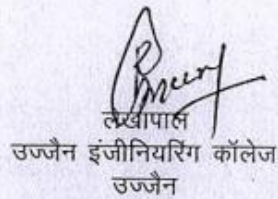 लेखापाल
उज्जैन इंजीनियरिंग कॉलेज
उज्जैन